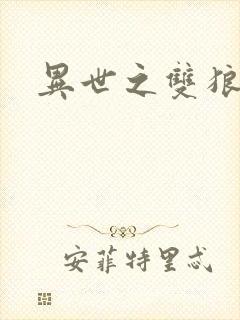 異世之雙狼
安菲特里忒